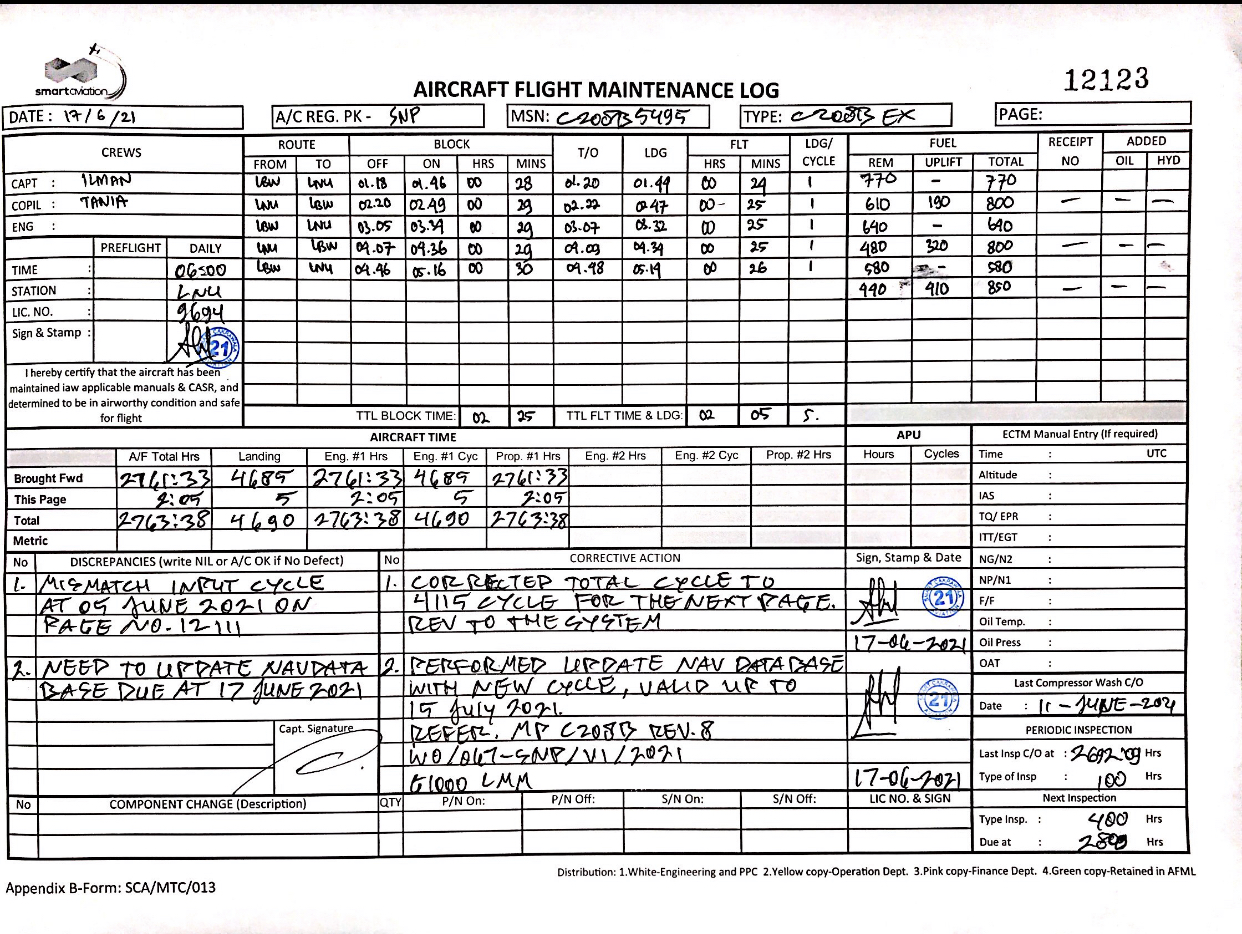 smartaviation
AIRCRAFT FLIGHT MAINTENANCE LOG
12123
DATE : 17/6/21 A/C REG. PK - SNP MSN: C208B5495 TYPE: C208B EX PAGE:
CREWS ROUTE BLOCK T/O LDG FLT LDG/ CYCLE FUEL RECEIPT NO ADDED
FROM TO OFF ON HRS MINS HRS MINS REM UPLIFT TOTAL OIL HYD
CAPT : ILMAN LBW LNU 01.18 01.46 00 28 01.20 01.44 00 24 1 770 - 770
COPIL : TANIA LNU LBW 02.20 02.49 00 29 02.22 02.47 00 - 25 1 610 190 800 — — —
ENG : LBW LNU 03.05 03.34 00 29 03.07 03.32 00 25 1 640 - 640
PREFLIGHT DAILY LNU LBW 04.07 04.36 00 29 04.09 04.34 00 25 1 480 320 800 — — —
TIME : 06:00 LBW LNU 04.46 05.16 00 30 04.48 05.14 00 26 1 580 - 580
STATION : LNU 440 410 850 — — —
LIC. NO. : 9694
Sign & Stamp : 21
I hereby certify that the aircraft has been
maintained iaw applicable manuals & CASR, and
determined to be in airworthy condition and safe
for flight
TTL BLOCK TIME: 02 25 TTL FLT TIME & LDG: 02 05 5.
AIRCRAFT TIME APU ECTM Manual Entry (If required)
A/F Total Hrs Landing Eng. #1 Hrs Eng. #1 Cyc Prop. #1 Hrs Eng. #2 Hrs Eng. #2 Cyc Prop. #2 Hrs Hours Cycles Time : UTC
Brought Fwd 2761:33 4685 2761:33 4685 2761:33 Altitude :
This Page 2:05 5 2:05 5 2:05 IAS :
Total 2763:38 4690 2763:38 4690 2763:38 TQ/ EPR :
Metric ITT/EGT :
No DISCREPANCIES (write NIL or A/C OK if No Defect) No CORRECTIVE ACTION Sign, Stamp & Date NG/N2 :
1. MISMATCH INPUT CYCLE 1. CORRECTED TOTAL CYCLE TO NP/N1 :
AT 05 JUNE 2021 ON 4115 CYCLE FOR THE NEXT PAGE. 21 F/F :
PAGE NO. 12111 REV TO THE SYSTEM Oil Temp. :
17-06-2021 Oil Press :
2. NEED TO UPDATE NAVDATA 2. PERFORMED UPDATE NAV DATABASE OAT :
BASE DUE AT 17 JUNE 2021 WITH NEW CYCLE, VALID UP TO 21 Last Compressor Wash C/O
15 July 2021. Date : 11 - JUNE - 2021
Capt. Signature REFER. MP C208B REV. 8 PERIODIC INSPECTION
WO/067-SNP/VI/2021 Last Insp C/O at : 2692:09 Hrs
G1000 LMM 17-06-2021 Type of Insp : 100 Hrs
No COMPONENT CHANGE (Description) QTY P/N On: P/N Off: S/N On: S/N Off: LIC NO. & SIGN Next Inspection
Type Insp. : 400 Hrs
Due at : Hrs
Distribution: 1.White-Engineering and PPC 2.Yellow copy-Operation Dept. 3.Pink copy-Finance Dept. 4.Green copy-Retained in AFML
Appendix B-Form: SCA/MTC/013